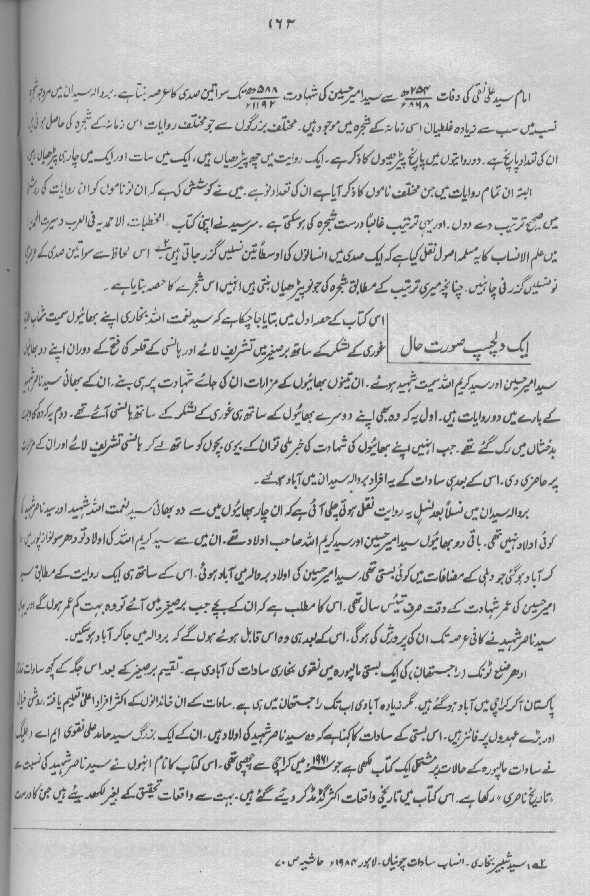 ۱۶۳
امام سید علی نقی کی وفات ۲۵۴ھ ۸۶۸ء سے سید امیر حسین کی شہادت ۵۸۸ھ ۱۱۹۲ء تک سوا تین صدی کا عرصہ بنتا ہے۔ بروالہ سیدان میں مروجہ شجرہ
نسب میں سب سے زیادہ غلطیاں اسی زمانہ کے شجرہ میں موجود ہیں۔ مختلف بزرگوں سے جو مختلف روایات اس زمانہ کے شجرہ کی حاصل ہوئی ہیں
ان کی تعداد پانچ ہے۔ دو روایتوں میں پانچ پانچ پیڑھیوں کا ذکر ہے۔ ایک روایت میں چھ پیڑھیاں ہیں، ایک میں سات اور ایک میں چار ہی پیڑھیاں ہیں
البتہ ان تمام روایات میں جن مختلف ناموں کا ذکر آیا ہے ان کی تعداد نو ہے۔ میں نے کوشش کی ہے کہ ان نو ناموں کو ان روایات کی روشنی
میں صحیح ترتیب دے دوں۔ اور یہی ترتیب غالباً درست شجرہ کی ہو سکتی ہے۔ سر سید نے اپنی کتاب الخطبات الاحمدیہ فی العرب و سیرت المحمدیہ
میں علم الانساب کا یہ مسلمہ اصول نقل کیا ہے کہ ایک صدی میں انسانوں کی اوسطاً تین نسلیں گزر جاتی ہیں۔ اس لحاظ سے سوا تین صدی کے عرصہ میں
نو نسلیں گزرنی چاہئیں۔ چنانچہ میری ترتیب کے مطابق شجرہ کی جو نو پیڑھیاں بنتی ہیں انہیں اس شجرے کا حصہ بنایا ہے۔
ایک دلچسپ صورت حال
اس کتاب کے حصہ اول میں بتایا جا چکا ہے کہ سید نعمت اللہ بخاری اپنے بھائیوں سمیت شہاب الدین
غوری کے لشکر کے ساتھ برصغیر میں تشریف لائے اور ہانسی کے قلعہ کی فتح کے دوران اپنے دو بھائیوں
سید امیر حسین اور سید کریم اللہ سمیت شہید ہوئے۔ ان تینوں بھائیوں کے مزارات ان کی جائے شہادت پر ہی بنے۔ ان کے بھائی سید ناصر شہید
کے بارے میں دو روایات ہیں۔ اول یہ کہ وہ بھی اپنے دوسرے بھائیوں کے ساتھ ہی غوری کے لشکر کے ساتھ ہانسی آئے تھے۔ دوم یہ کہ وہ
بدخشاں میں رک گئے تھے۔ جب انہیں اپنے بھائیوں کی شہادت کی خبر ملی تو ان کے بیوی بچوں کو ساتھ لے کر ہانسی تشریف لائے اور ان کے مزارات
پر حاضری دی۔ اس کے بعد ہی سادات کے یہ افراد بروالہ سیدان میں آباد ہوئے۔
بروالہ سیدان میں نسلاً بعد نسلٍ یہ روایت نقل ہوتی چلی آئی ہے کہ ان چار بھائیوں میں سے دو بھائی سید نعمت اللہ شہید اور سید ناصر شہید کی
کوئی اولاد نہیں تھی۔ باقی دو بھائیوں سید امیر حسین اور سید کریم اللہ صاحب اولاد تھے۔ ان میں سے سید کریم اللہ کی اولاد تو دھر سو نواز پور میں جا
کر آباد ہو گئی جو دہلی کے مضافات میں کوئی بستی تھی۔ سید امیر حسین کی اولاد بروالہ میں آباد ہوئی۔ اس کے ساتھ ہی ایک روایت کے مطابق سید
امیر حسین کی عمر شہادت کے وقت صرف تئیس سال تھی۔ اس کا مطلب ہے کہ ان کے بچے جب برصغیر میں آئے تو وہ بہت کم عمر ہوں گے اور یہاں
سید ناصر شہید نے کافی عرصہ تک ان کی پرورش کی ہوگی۔ اس کے بعد ہی وہ اس قابل ہوئے ہوں گے کہ بروالہ میں جا کر آباد ہو سکیں۔
ادھر ضلع ٹونک (راجستھان) کی ایک بستی مالپورہ میں نقوی بخاری سادات کی آبادی ہے۔ تقسیم برصغیر کے بعد اس جگہ کے کچھ سادات خاندان
پاکستان آ کر کراچی میں آباد ہو گئے ہیں۔ مگر زیادہ آبادی اب تک راجستھان میں ہی ہے۔ سادات کے ان خاندانوں کے اکثر افراد اعلیٰ تعلیم یافتہ، روشن خیال
اور بڑے عہدوں پر فائز ہیں۔ اس بستی کے سادات کا کہنا ہے کہ وہ سید ناصر شہید کی اولاد ہیں۔ ان کے ایک بزرگ سید حامد علی نقوی ایم اے (علیگ)
نے سادات مالپورہ کے حالات پر مشتمل ایک کتاب لکھی ہے جو ۱۹۶۱ء میں کراچی سے چھپی تھی۔ اس کتاب کا نام انہوں نے سید ناصر شہید کی نسبت سے
"تاریخ ناصری" رکھا ہے۔ اس کتاب میں تاریخی واقعات اکثر گڈمڈ کر دیئے گئے ہیں۔ بہت سے واقعات تحقیق کے بغیر لکھ دیئے ہیں جن کا درست
۲؎ سید شبیر بخاری۔ انساب سادات چونیاں۔ لاہور ۱۹۸۴ء حاشیہ ص ۷۰